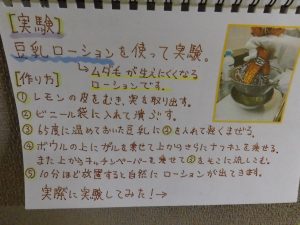 [実験]
豆乳ローションを使って実験。
↳ムダ毛が生えにくくなる
ローションです。
[作り方]
① レモンの皮をむき、実を取り出す。
② ビニール袋に入れて潰す。
③ 65度に温めておいた豆乳に②を入れて軽くまぜる。
④ ボウルの上にザルを乗せて上からさらにナフキンを乗せる、
また上からキッチンペーパーを乗せて③をそこに流しこむ。
⑤ 10分ほど放置すると自然にローションが出てきます。
実際に実験してみた!→